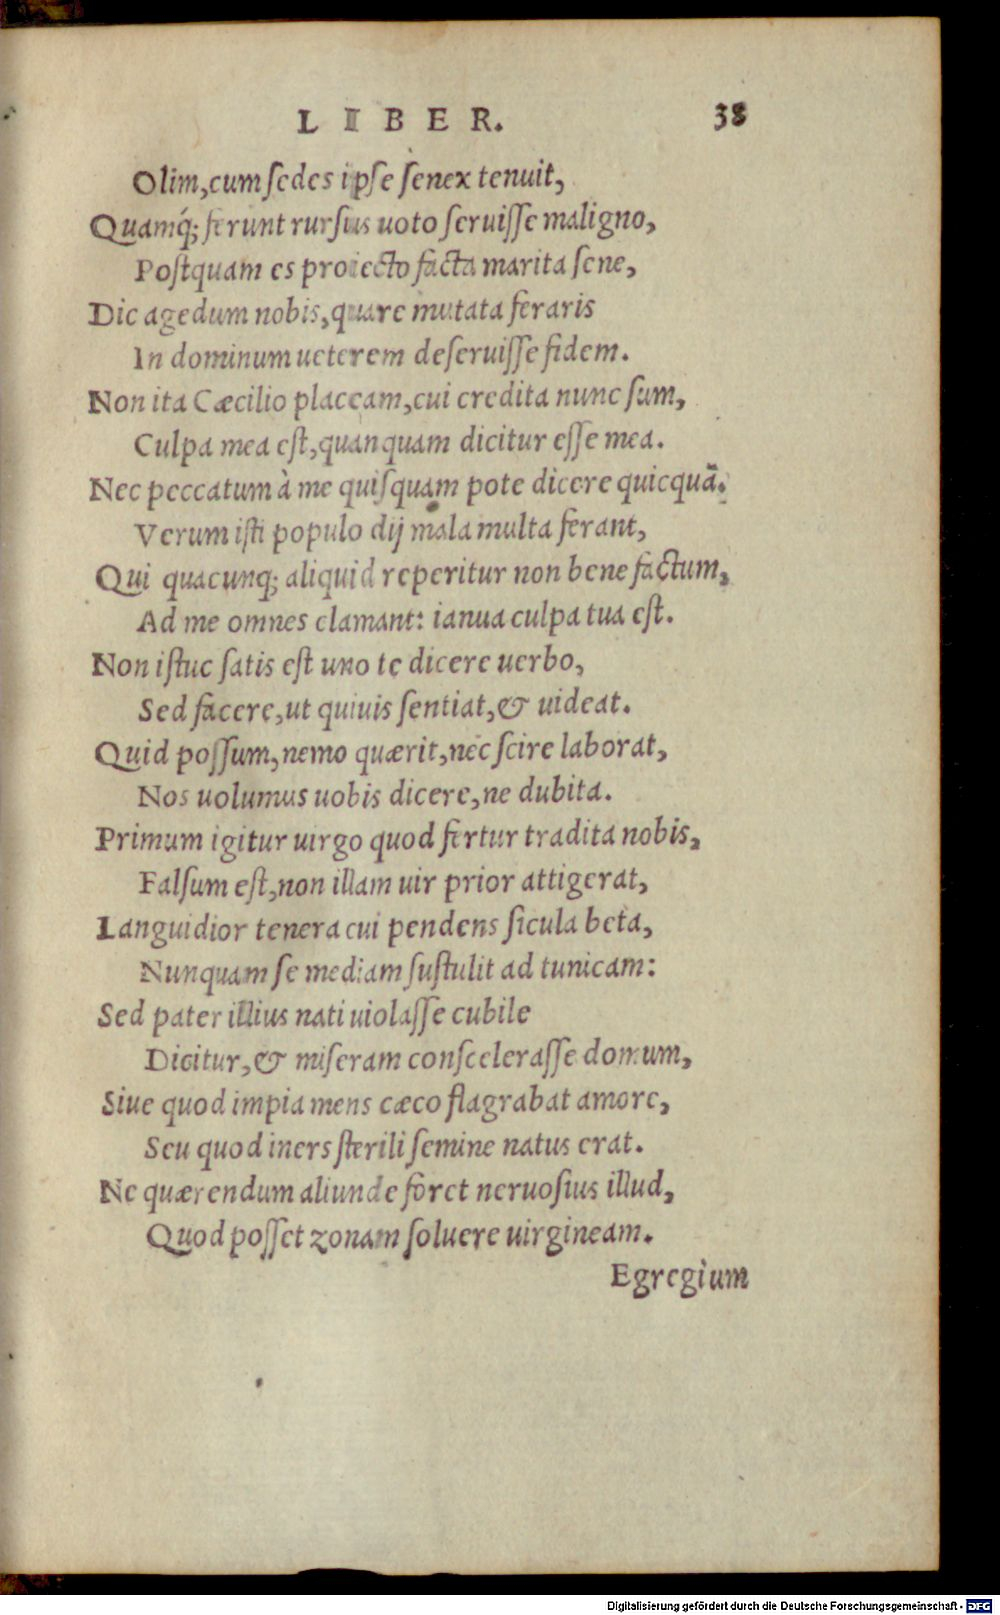 LIBER. 38
Olim, cum sedes ipse senex tenuit,
Quamq́; ferunt rursus uoto seruisse maligno,
Postquam es proiecto facta marita sene,
Dic agedum nobis, quare mutata feraris
In dominum ueterem deseruisse fidem.
Non ita Cæcilio placeam, cui credita nunc sum,
Culpa mea est, quanquam dicitur esse mea.
Nec peccatum à me quisquam pote dicere quicquã.
Verum isti populo dij mala multa ferant,
Qui quacunq; aliquid reperitur non bene factum,
Ad me omnes clamant: ianua culpa tua est.
Non istuc satis est uno te dicere uerbo,
Sed facere, ut quiuis sentiat, & uideat.
Quid possum, nemo quærit, nec scire laborat,
Nos uolumus uobis dicere, ne dubita.
Primum igitur uirgo quod fertur tradita nobis,
Falsum est, non illam uir prior attigerat,
Languidior tenera cui pendens sicula beta,
Nunquam se mediam sustulit ad tunicam:
Sed pater illius nati uiolasse cubile
Dicitur, & miseram conscelerasse domum,
Siue quod impia mens cæco flagrabat amore,
Seu quod iners sterili semine natus erat.
Ne quærendum aliunde foret neruosius illud,
Quod posset zonam soluere uirgineam.
Egregium
Digitalisierung gefördert durch die Deutsche Forschungsgemeinschaft - DFG